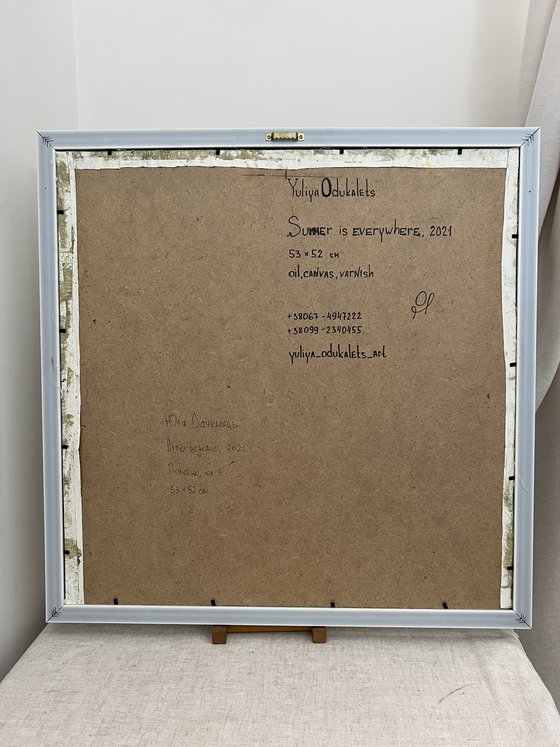 Yuliya Odukalets
Summer is everywhere, 2021
53×52 см
oil, canvas, varnish
+38067-4947222
+38099-2340455
yuliya_odukalets_art
Юлія Одукалець
Літо всюди, 2021
Полотно, олія
53×52 см